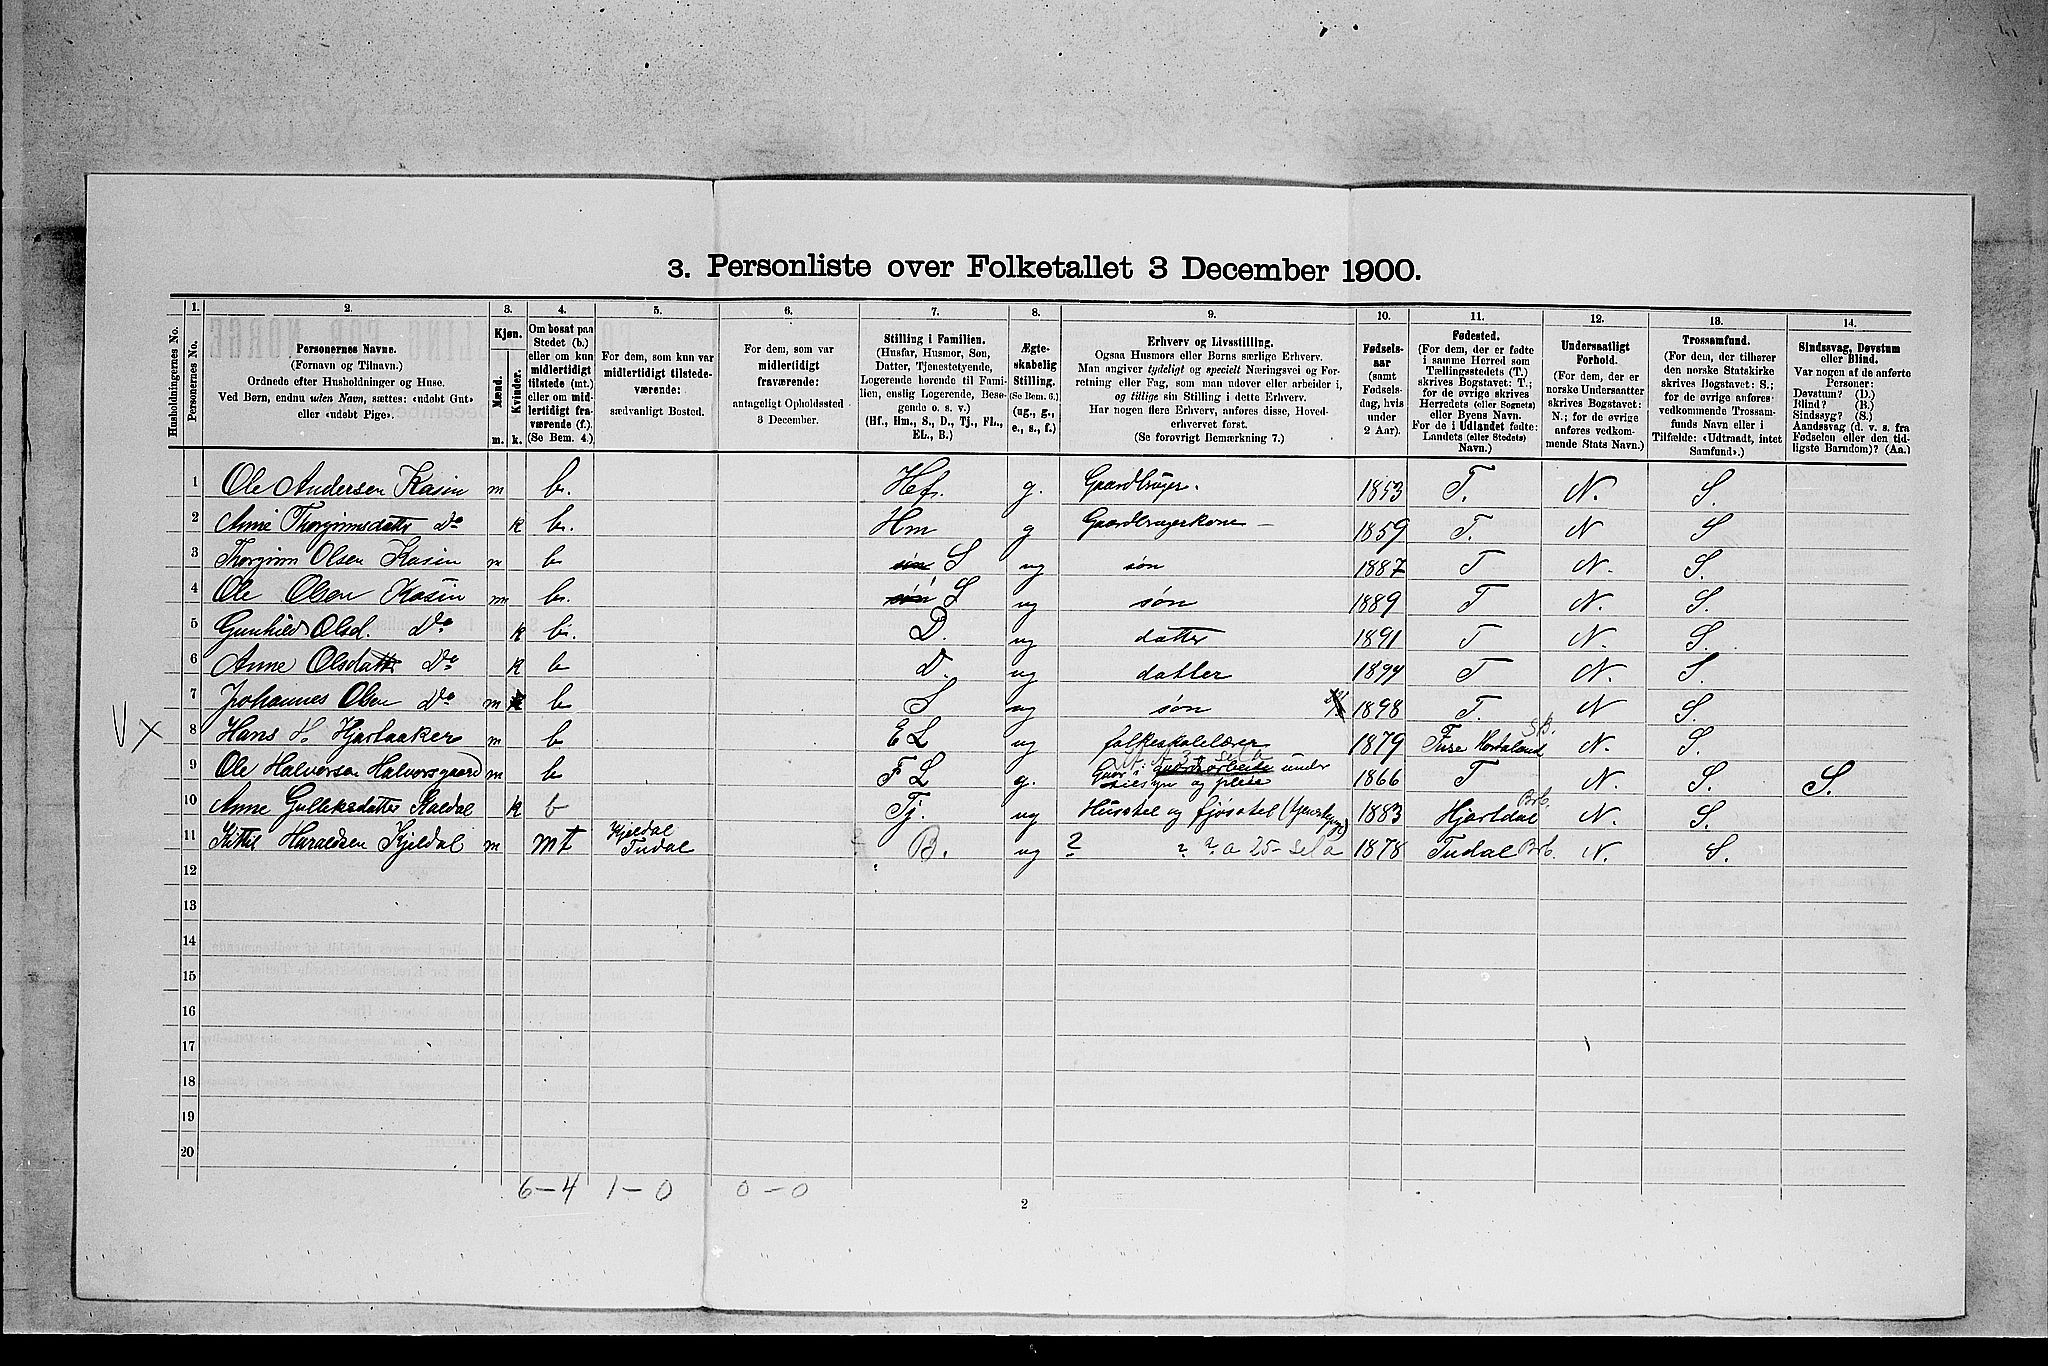 3. Personliste over Folketallet 3 December 1900.
Husholdningernes No.
1.
Personernes No.
2.
Personernes Navne.
(Fornavn og Tilnavn.)
Ordnede efter Husholdninger og Huse.
Ved Børn, endnu uden Navn, sættes: «udøbt Gut»
eller «udøbt Pige».
3.
Kjøn.
Mænd.
Kvinder.
m.
k.
4.
Om bosat paa
Stedet (b.)
eller om kun
midlertidigt
tilstede (mt.)
eller om mid-
lertidigt fra-
værende (f.).
(Se Bem. 4.)
5.
For dem, som kun var
midlertidigt tilstede-
værende:
sædvanligt Bosted.
6.
For dem, som var
midlertidigt
fraværende:
antageligt Opholdssted
3 December.
7.
Stilling i Familien.
(Husfar, Husmor, Søn,
Datter, Tjenestetyende,
Logerende hørende til Fami-
lien, enslig Logerende, Besø-
gende o. s. v.)
(Hf., Hm., S., D., Tj., FL.,
EL., B.)
8.
Ægte-
skabelig
Stilling.
(Se Bem. 6.)
(ug., g.,
e., s., f.)
9.
Erhverv og Livsstilling.
Ogsaa Husmors eller Børns særlige Erhverv.
Man angiver tydeligt og specielt Næringsvei og For-
retning eller Fag, som man udøver eller arbeider i,
og tillige sin Stilling i dette Erhverv.
Har nogen flere Erhverv, anføres disse, Hoved-
erhvervet først.
(Se forøvrigt Bemærkning 7.)
10.
Fødsels-
aar
(samt
Fødsels-
dag, hvis
under
2 Aar).
11.
Fødested.
(For dem, der er fødte
i samme Herred som
Tællingsstedets (T.)
skrives Bogstavet: T.;
for de øvrige skrives
Herredets (eller Sognets)
eller Byens Navn.
For de i Udlandet fødte:
Landets (eller Stedets)
Navn.)
12.
Undersaatligt
Forhold.
(For dem, der er
norske Undersaatter
skrives Bogstavet:
N.; for de øvrige
anføres vedkom-
mende Stats Navn.)
13.
Trossamfund.
(For dem, der tilhører
den norske Statskirke
skrives Bogstavet: S.;
for de øvrige anføres
vedkommende Trossam-
funds Navn eller i
Tilfælde: «Udtraadt, intet
Samfund».)
14.
Sindssvag, Døvstum
eller Blind.
Var nogen af de anførte
Personer:
Døvstum? (D.)
Blind? (B.)
Sindssyg? (S.)
Aandssvag (d. v. s. fra
Fødselen eller den tid-
ligste Barndom)? (Aa.)
1 Ole Andersen Kasin m b. Hf. g. Gaardbruger. 1853 T. N. S.
2 Anne Thorgrimsdatter Do k b. Hm g Gaardbrugerkone 1859 T. N S
3 Thorgrim Olsen Kasin m b søn S ug søn 1887 T N. S.
4 Ole Olsen Kasin m b. søn S ug søn 1889 T N. S.
5 Gunhild Olsd. Do k b. D. ug datter 1891 T N. S.
6 Anne Olsdatter Do k b D. ug datter 1894 T N. S.
7 Johannes Olsen Do m k b S ug søn 1898 T. N S.
V X
8 Hans H. Hjartaaker m b EL ug folkeskolelærer 1879 Fuse Hordaland S.B. N. S.
9 Ole Halvorsen Halvorsgaard m b FL g. gaardarbeide under tilsyn og pleie 1866 T N. S. S.
10 Anne Gulliksdatter Kaldal k b Tj. ug Husstel og fjøsstel 1883 Hjartdal Brb. N. S.
11 Kittil Haraldsen Kjeldal m mt Kjeldal Tudal B. ug ? ? ? 1878 Tudal Brb. N. S.
12
13
14
15
16
17
18
19
20
6 – 4 1 – 0 0 – 0
2